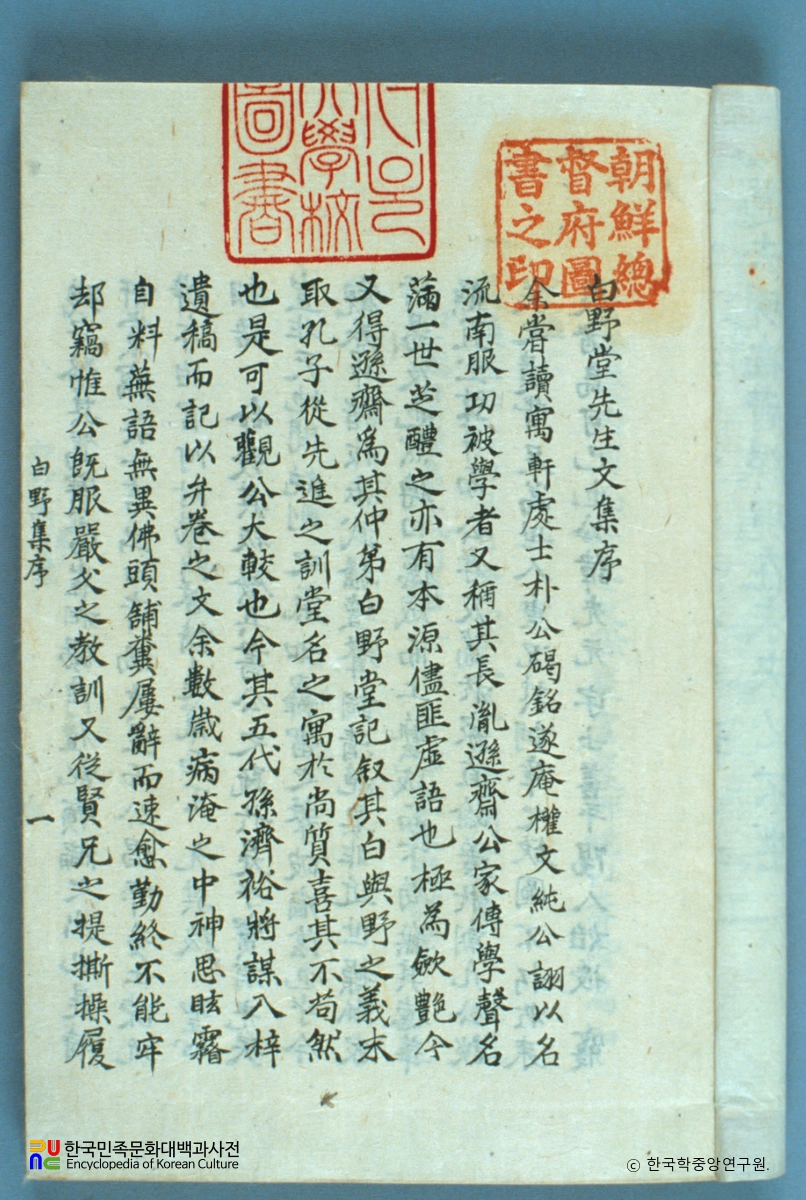 白野堂先生文集序
余甞讀寓軒處士朴公碣銘遂庵權文純公詡以名
流南服功被學者又稱其長胤遜齋公家傳學聲名
滿一世芝醴之亦有本源儘匪虛語也極為歆艶今
又得遜齋為其仲弟白野堂記叙其白與野之義末
取孔子從先進之訓堂名之寓於尚質喜其不苟然
也是可以觀公大較也今其五代孫濟裕將謀入梓
遺稿而記以弁卷之文余數歲病淹之中神思眩霧
自料蕪語無異佛頭舖糞屢辭而速愈勤終不能牢
却竊惟公旣服嚴父之教訓又從賢兄之提撕操履
白野集序
一
朝鮮總
督府圖
書之印
大學校
圖書
한국민족문화대백과사전
Encyclopedia of Korean Culture
ⓒ 한국학중앙연구원.